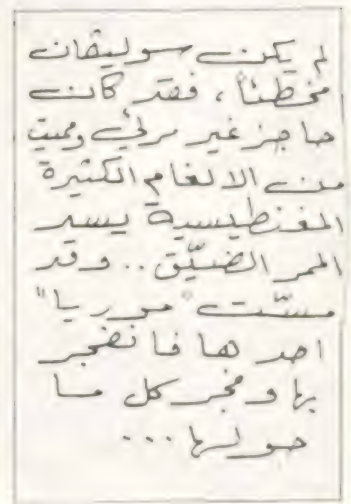 لم يكن سوليڤان
مخطئاً ، فقد كان
حاجز غير مرئي ومميت
من الالغام الكثيرة
المغنطيسية يسد
الممر الضيّق .. وقد
مسّت "موريا"
احدها فانفجر
بها وفجر كل ما
حولها ...